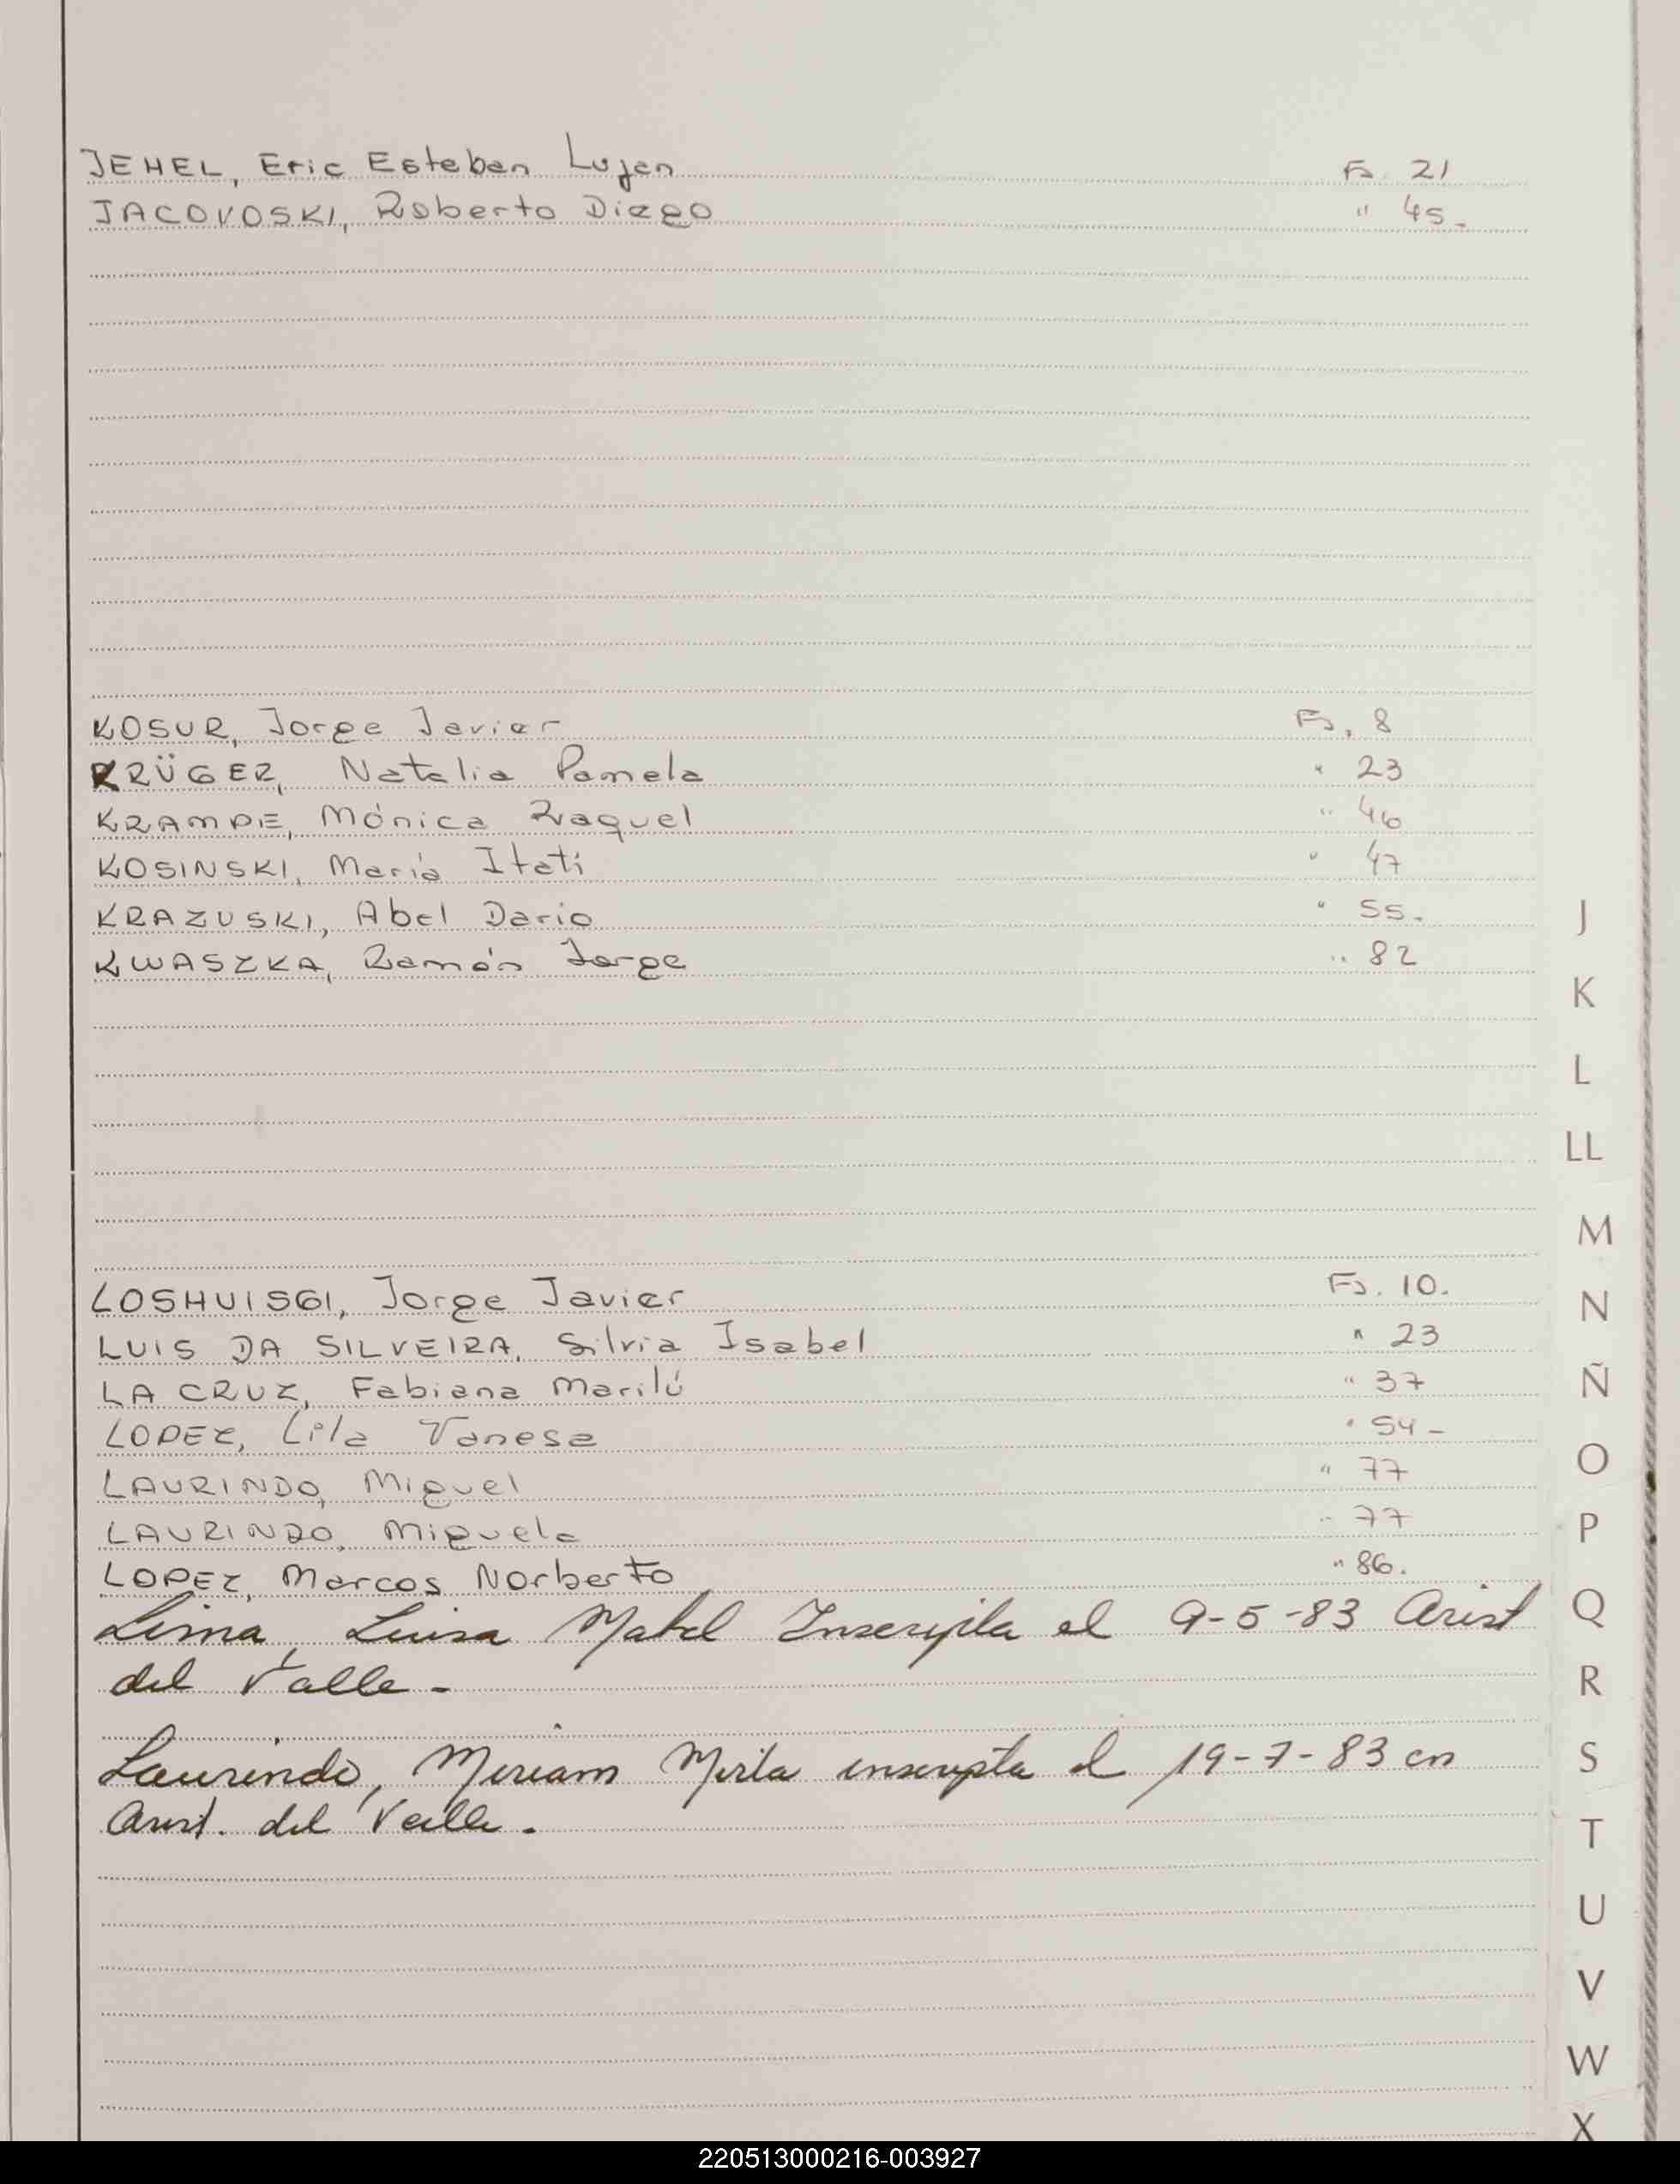 JEHEL, Eric Esteban Lujan Fs. 21
JACOVOSKI, Roberto Diego " 45.-
KOSUR, Jorge Javier Fs. 8
KRÜGER, Natalia Pamela " 23
KRAMPE, Mónica Raquel " 46
KOSINSKI, María Itatí " 47
KRAZUSKI, Abel Dario " 55.
KWASZKA, Ramón Jorge " 82
LOSHUISGI, Jorge Javier Fs. 10.
LUIS DA SILVEIRA, Silvia Isabel " 23
LA CRUZ, Fabiana Marilú " 37
LOPEZ, Lila Vanesa " 54-
LAURINDO, Miguel " 77
LAURINDO, Miguela " 77
LOPEZ, Marcos Norberto " 86.
Lima, Luisa Mabel Inscripta el 9-5-83 Arist
del Valle -
Laurindo, Miriam Mirta inscripta el 19-7-83 en
Arist. del Valle.
J
K
L
LL
M
N
Ñ
O
P
Q
R
S
T
U
V
W
X
220513000216-003927